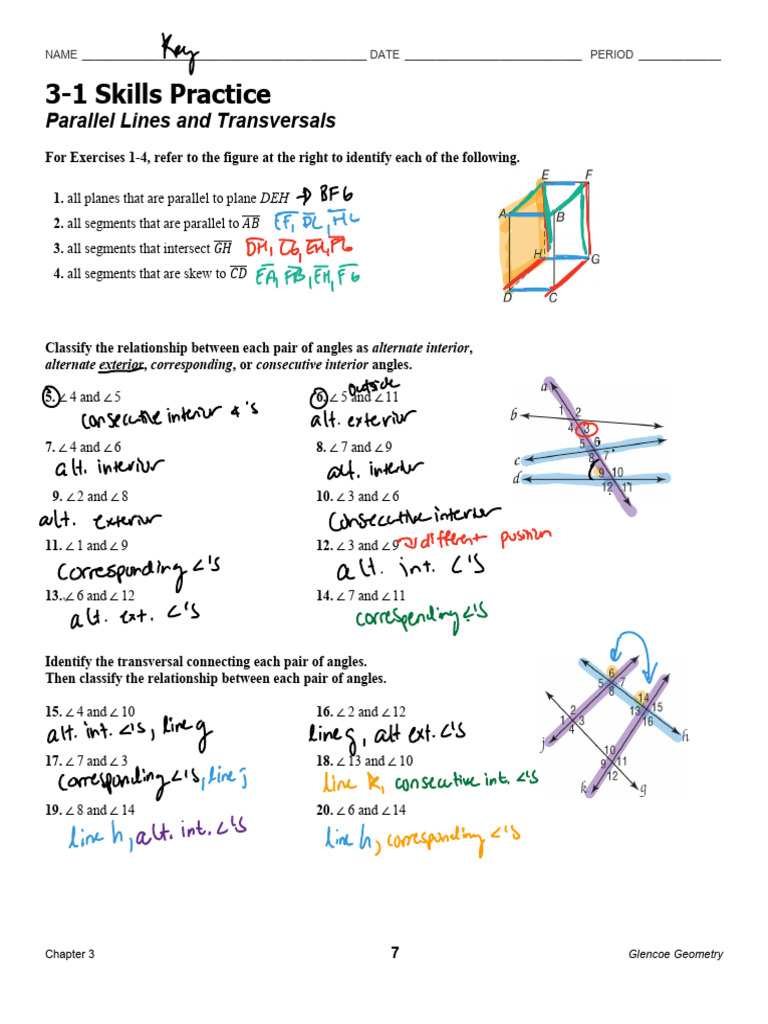 NAME Key DATE PERIOD
3-1 Skills Practice
Parallel Lines and Transversals
For Exercises 1-4, refer to the figure at the right to identify each of the following.
1. all planes that are parallel to plane DEH → BFG
2. all segments that are parallel to AB EF, DC, HG
3. all segments that intersect GH DH, CG, EH, FG
4. all segments that are skew to CD EA, FB, EH, FG
E F
A B
H G
D C
Classify the relationship between each pair of angles as alternate interior,
alternate exterior, corresponding, or consecutive interior angles.
5. ∠4 and ∠5
consecutive interior ∠'s
6. ∠5 and ∠11 outside
alt. exterior
7. ∠4 and ∠6
alt. interior
8. ∠7 and ∠9
alt. interior
9. ∠2 and ∠8
alt. exterior
10. ∠3 and ∠6
Consecutive interior
11. ∠1 and ∠9
Corresponding ∠'s
12. ∠3 and ∠9 different position
alt. int. ∠'s
13. ∠6 and ∠12
alt. ext. ∠'s
14. ∠7 and ∠11
corresponding ∠'s
a
b 1 2
4 3
5 6
c 8 7
d 9 10
12 11
Identify the transversal connecting each pair of angles.
Then classify the relationship between each pair of angles.
15. ∠4 and ∠10
alt. int. ∠'s, line g
16. ∠2 and ∠12
line g, alt ext. ∠'s
17. ∠7 and ∠3
Corresponding ∠'s, line j
18. ∠13 and ∠10
line k, consecutive int. ∠'s
19. ∠8 and ∠14
line h, alt. int. ∠'s
20. ∠6 and ∠14
line h, corresponding ∠'s
6
5 7
8
14
13 15
16
2
1 3
4
j h
10
9 11
12
k g
Chapter 3 7 Glencoe Geometry